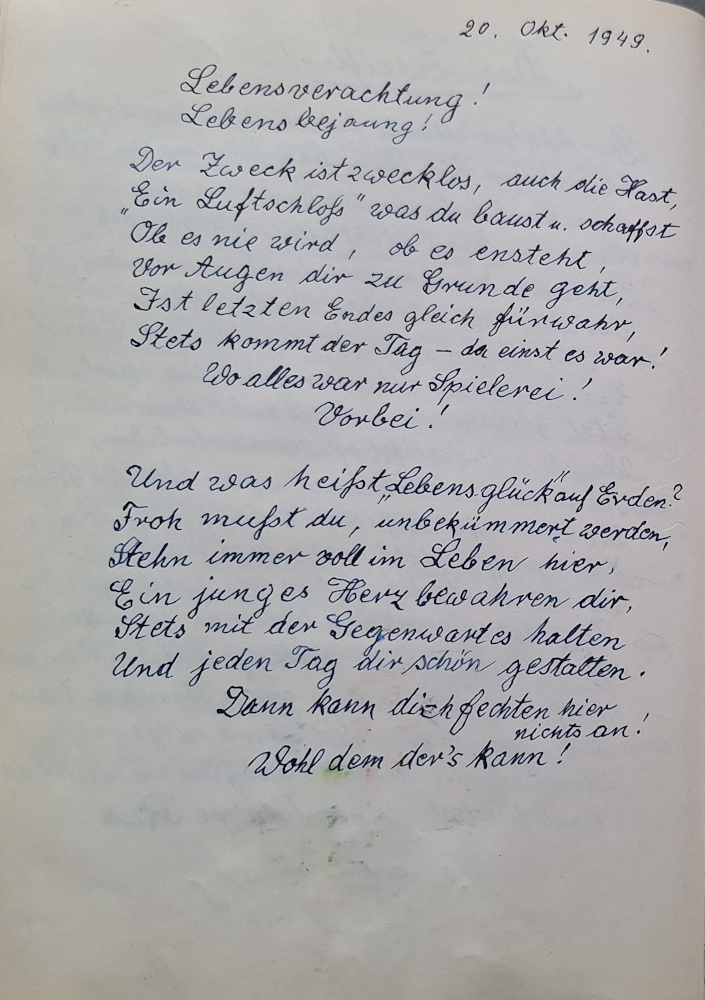 20. Okt. 1949.
Lebensverachtung!
Lebensbejaung!
Der Zweck ist zwecklos, auch die Hast,
„Ein Luftschloß" was du baust u. schaffst
Ob es nie wird, ob es ensteht,
Vor Augen dir zu Grunde geht,
Ist letzten Endes gleich fürwahr,
Stets kommt der Tag – da einst es war!
Wo alles war nur Spielerei!
Vorbei!
Und was heißt „Lebensglück" auf Erden?
Froh mußt du, unbekümmert werden,
Stehn immer voll im Leben hier,
Ein junges Herz bewahren dir,
Stets mit der Gegenwart es halten
Und jeden Tag dir schön gestalten.
Dann kann dich fechten hier
nichts an!
Wohl dem der's kann!